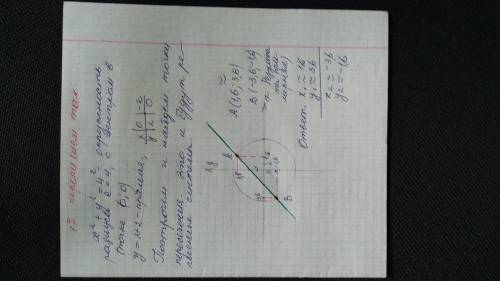 1) перепишем так
x² + y² = 4² - окружность
радиуса r = 4, с центром в
точке (0;0)
y = x+2 - прямая,
x | 0 | -2
y | 2 | 0
Построим и найдем точки
пересечения, это и будут ре-
шение системы
A (1,6; 3,6)
B (-3,6; -1,6)
Ответ:
x₁ ≈ 1,6
y₁ ≈ 3,6
x₂ ≈ -3,6
y₂ ≈ -1,6